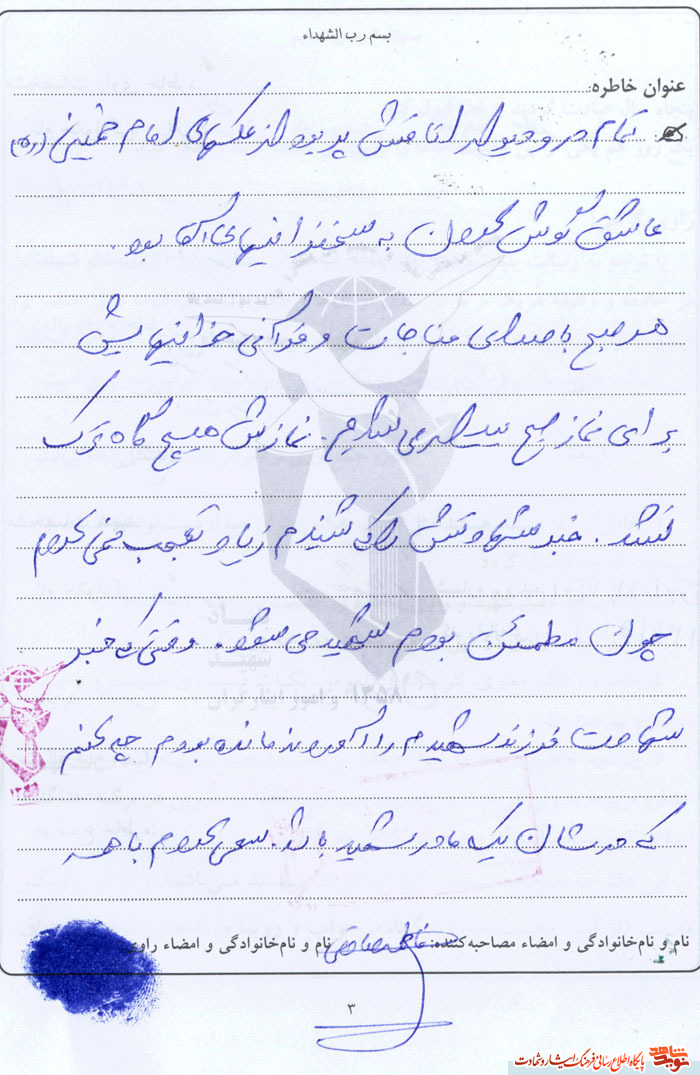 بسم رب الشهداء
عنوان خاطره:
تمام در و دیوار اتاقش پر بود از عکسهای امام خمینی (ره)
عاشق گوش کردن به سخنرانیهای آقا بود.
هر صبح با صدای مناجات و قرآن خوانیهایش
برای نماز صبح بیدار می شدیم. نمازش هیچ گاه ترک
نشد. خبر شهادتش را که شنیدم زیاد تعجب نمی کردم
چون مطمئن بودم شهید می شود. وقتی که خبر
شهادت فرزند شهیدم را آوردند مانده بودم چه کنم
که در شأن یک مادر شهید باشد. سعی کردم با همه
نام و نام‌خانوادگی و امضاء مصاحبه‌کننده:
نام و نام‌خانوادگی و امضاء راوی:
۳
۱۳۵۸
نوید شاهد
پایگاه اطلاع رسانی فرهنگ ایثار و شهادت